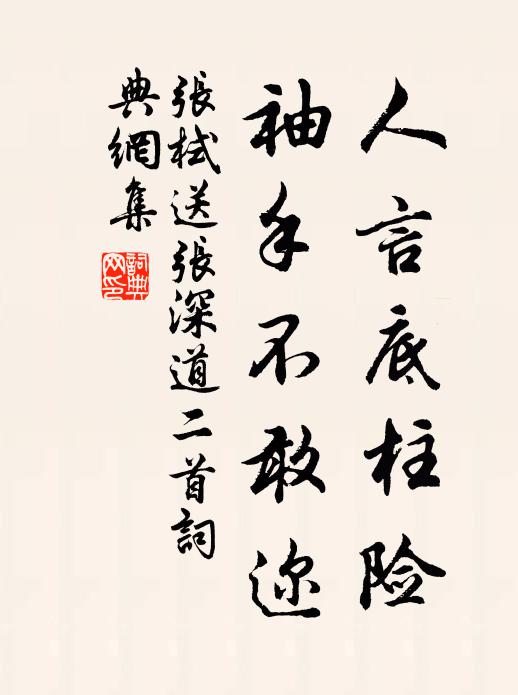 人言底柱险
袖手不敢迩
張栻送張深道二首詞
典網集
詞典网印